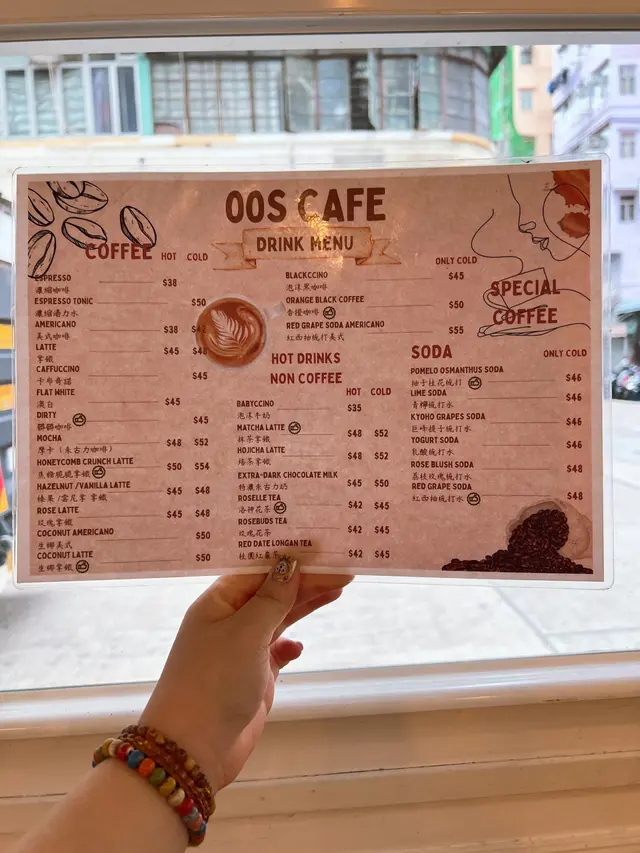 OOS CAFE
DRINK MENU
COFFEE HOT COLD
ESPRESSO $38
濃縮咖啡
ESPRESSO TONIC $50
濃縮湯力水
AMERICANO $38
美式咖啡
LATTE $45 $48
拿鐵
CAFFUCCINO $45
卡布奇諾
FLAT WHITE $45
澳白
DIRTY $45
髒髒咖啡
MOCHA $48 $52
摩卡（朱古力咖啡）
HONEYCOMB CRUNCH LATTE $50 $54
蕉糖脆脆拿鐵
HAZELNUT /VANILLA LATTE $45 $48
榛果 /雲尼拿 拿鐵
ROSE LATTE $45 $48
玫瑰拿鐵
COCONUT AMERICANO $50
生椰美式
COCONUT LATTE $50
生椰拿鐵
ONLY COLD
BLACKCCINO $45
泡沫黑咖啡
ORANGE BLACK COFFEE $50
香橙咖啡
RED GRAPE SODA AMERICANO $55
紅西柚梳打美式
SPECIAL
COFFEE
HOT DRINKS
NON COFFEE
HOT COLD
BABYCCINO $35
泡沫牛奶
MATCHA LATTE $48 $52
抹茶拿鐵
HOJICHA LATTE $48 $52
焙茶拿鐵
EXTRA-DARK CHOCOLATE MILK $45 $50
特濃朱古力奶
ROSELLE TEA $42 $45
洛神花茶
ROSEBUDS TEA $42 $45
玫瑰花茶
RED DATE LONGAN TEA $42 $45
桂圓紅棗茶
SODA ONLY COLD
POMELO OSMANTHUS SODA $46
柚子桂花梳打
LIME SODA $46
青檸梳打水
KYOHO GRAPES SODA $46
巨峰提子梳打水
YOGURT SODA $46
乳酸梳打水
ROSE BLUSH SODA $48
荔枝玫瑰梳打水
RED GRAPE SODA $48
紅西柚梳打水